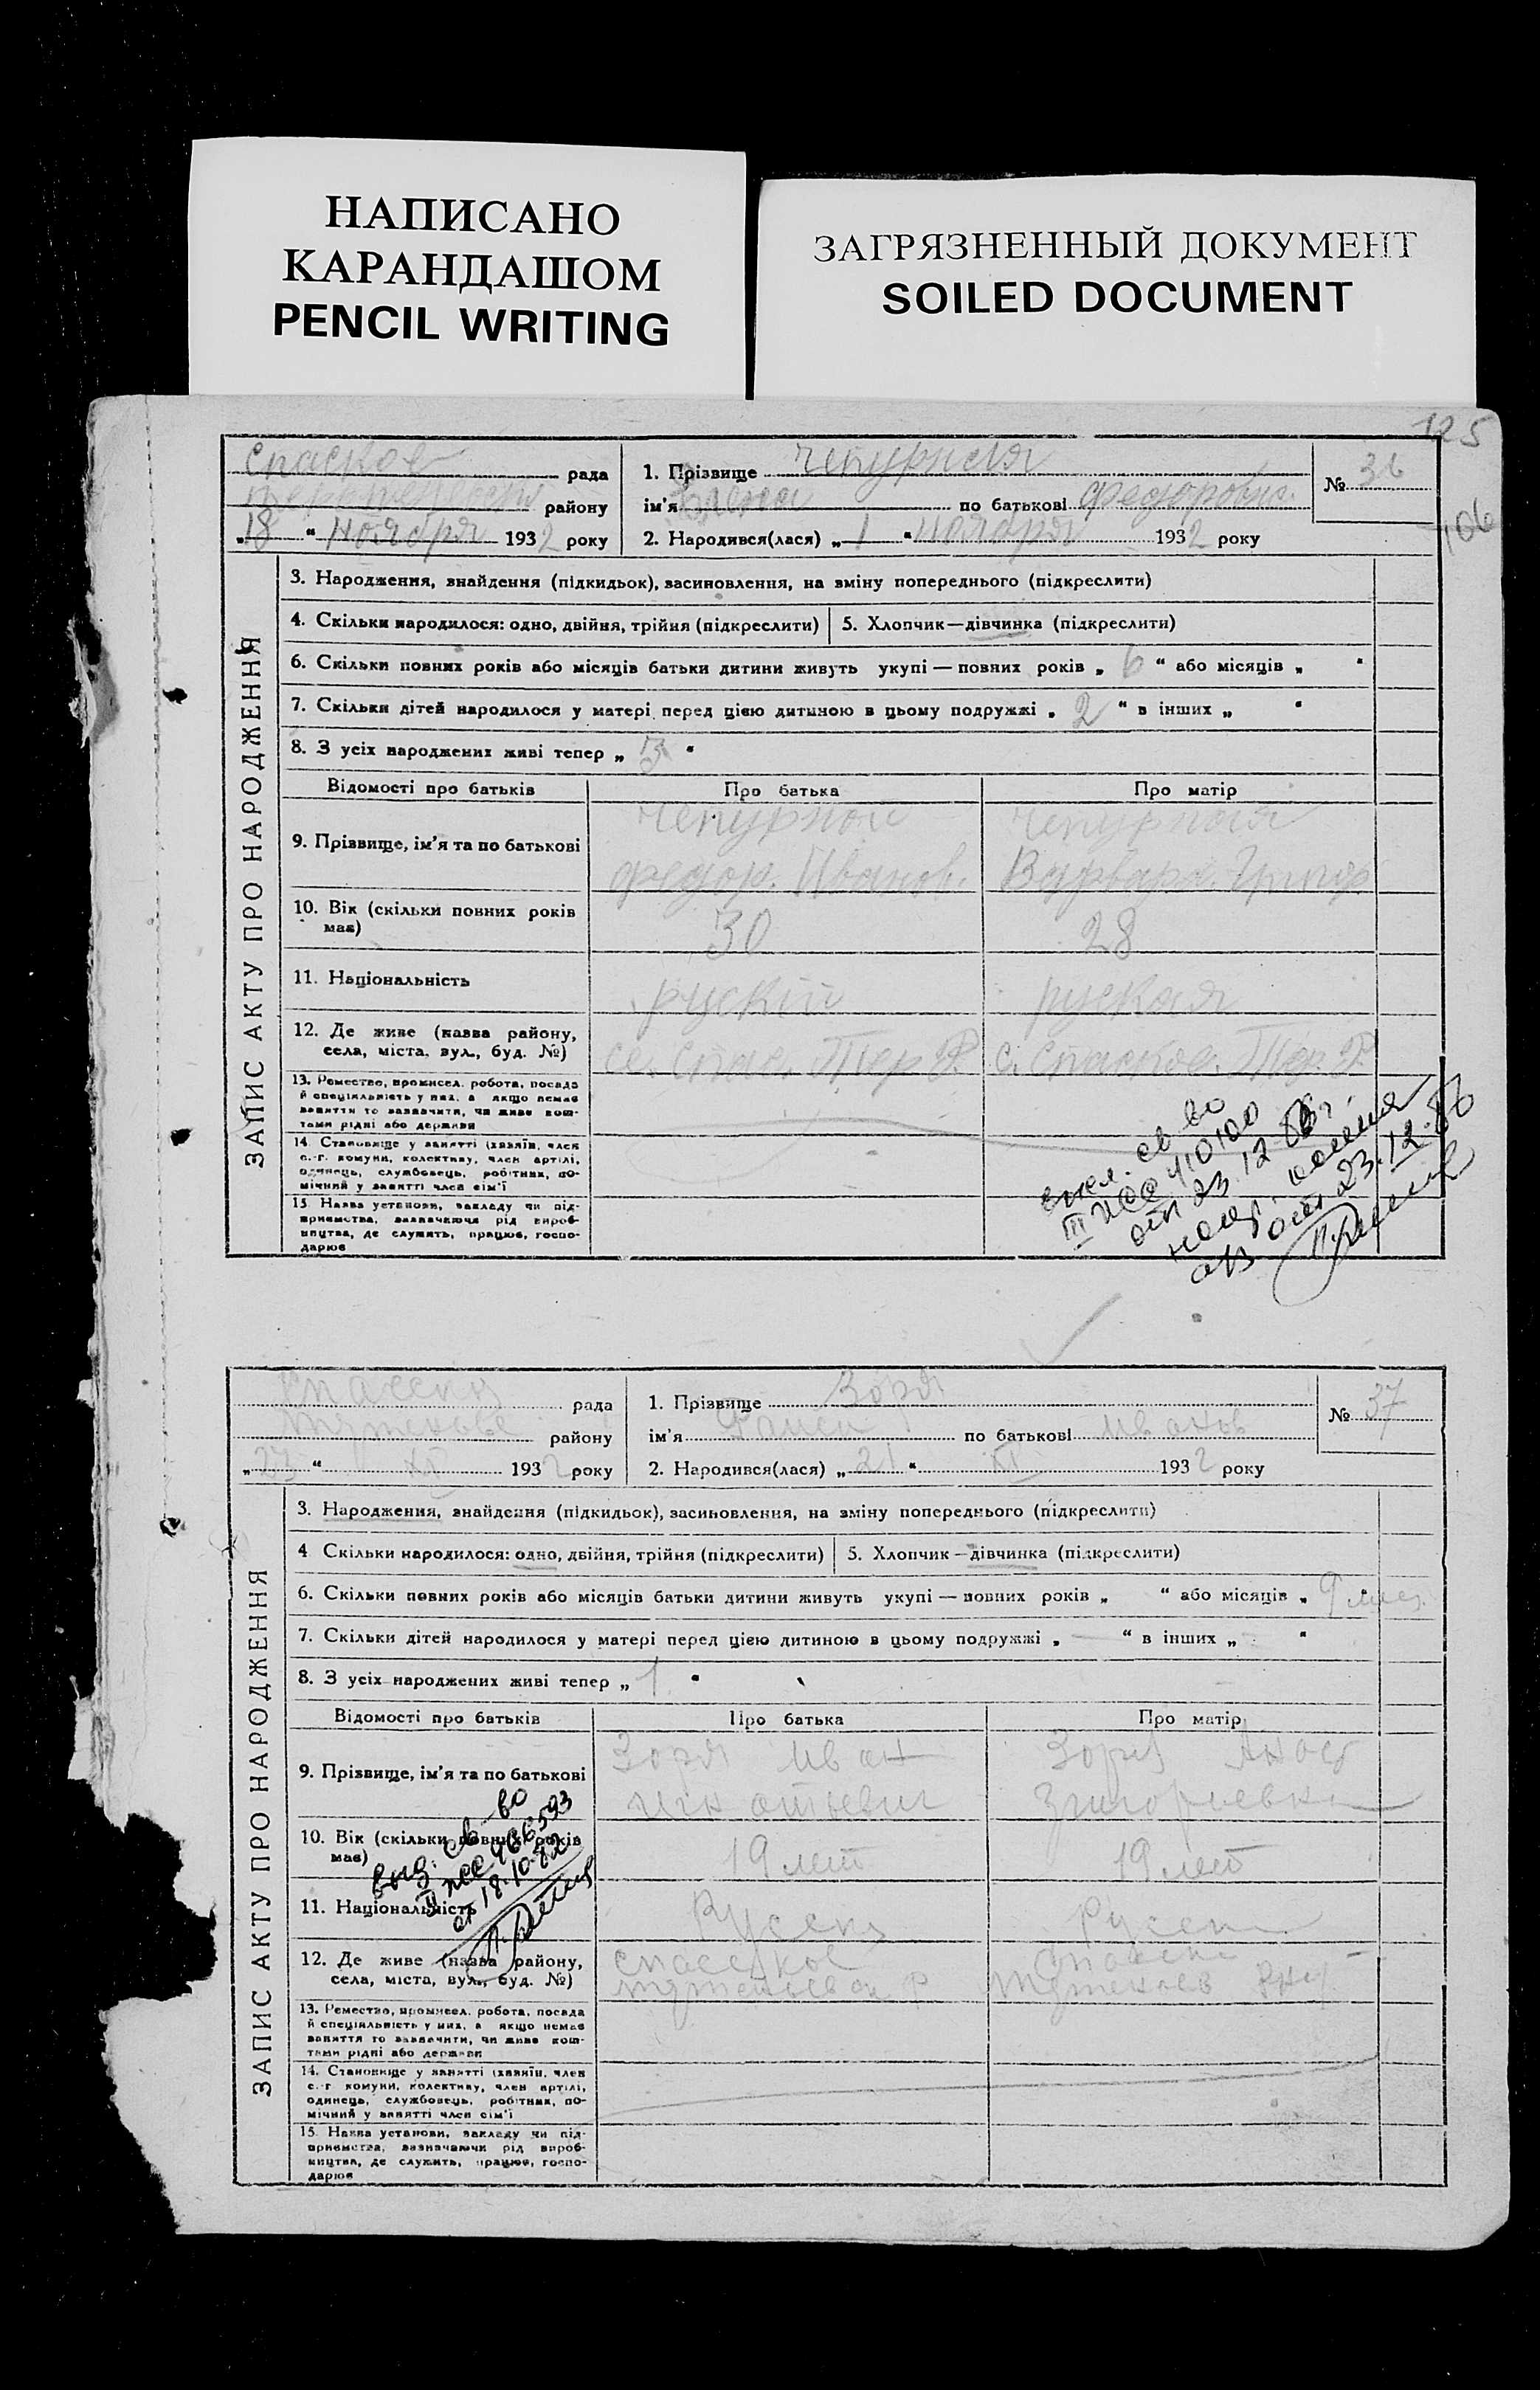 НАПИСАНО
КАРАНДАШОМ
PENCIL WRITING
ЗАГРЯЗНЕННЫЙ ДОКУМЕНТ
SOILED DOCUMENT
125
106
ЗАПИС АКТУ ПРО НАРОДЖЕННЯ
Спасков рада
району
„18“ Ноября 1932 року
1. Прізвище Чепурная
ім'я Елена по батькові Федоровна.
2. Народився(лася) „1“ Ноября 1932 року
№ 36
3. Народження, знайдення (підкидьок), засиновлення, на зміну попереднього (підкреслити)
4. Скільки народилося: одно, двійня, трійня (підкреслити)
5. Хлопчик—дівчинка (підкреслити)
6. Скільки повних років або місяців батьки дитини живуть укупі — повних років „6“ або місяців „ “
7. Скільки дітей народилося у матері перед цією дитиною в цьому подружжі „2“ в інших „ “
8. З усіх народжених живі тепер „3“
Відомості про батьків
Про батька
Про матір
9. Прізвище, ім'я та по батькові
Чепурной
Федор. Иванов.
Чепурная
Варвара. Григор
10. Вік (скільки повних років має)
30
28
11. Національність
рускій
руская
12. Де живе (назва району, села, міста, вул., буд. №)
се. Спас. Тер Р.
с. Спаское. Тер. Р.
13. Ремество, промисел, робота, посада й спеціяльність у них, а якщо немає заняття то зазначити, чи живе коштами рідні або держави
14. Становище у занятті (хазяїн, член с.-г. комуни, колективу, член артілі, одинець, службовець, робітник, помічний у занятті член сім'ї
15. Назва установи, закладу чи підприємства, зазначаючи рід виробництва, де служить, працює, господарює
св во
III 410100
от 23.12.86г.
от 23.12.86
ЗАПИС АКТУ ПРО НАРОДЖЕННЯ
рада
району
„27“ XI 1932 року
1. Прізвище Зоря
ім'я по батькові Иванов
2. Народився(лася) „21“ XI 1932 року
№ 37
3. Народження, знайдення (підкидьок), засиновлення, на зміну попереднього (підкреслити)
4 Скільки народилося: одно, двійня, трійня (підкреслити)
5. Хлопчик—дівчинка (підкреслити)
6. Скільки повних років або місяців батьки дитини живуть укупі — повних років „ “ або місяців „9 мес.
7. Скільки дітей народилося у матері перед цією дитиною в цьому подружжі „—“ в інших „ “
8. З усіх народжених живі тепер „1“
Відомості про батьків
Про батька
Про матір
9. Прізвище, ім'я та по батькові
Зоря Иван
Игнатьевич
Зоря
10. Вік (скільки повних років має)
19 лет
19 лет
11. Національність
12. Де живе (назва району, села, міста, вул., буд. №)
13. Ремество, промисел, робота, посада й спеціяльність у них, а якщо немає заняття то зазначити, чи живе коштами рідні або держави
14. Становище у занятті (хазяїн, член с.-г комуни, колективу, член артілі, одинець, службовець, робітник, помічний у занятті член сім'ї
15. Назва установи, закладу чи підприємства, зазначаючи рід виробництва, де служить, працює, господарює
выд. св-во
II 466593
от 18.10.82